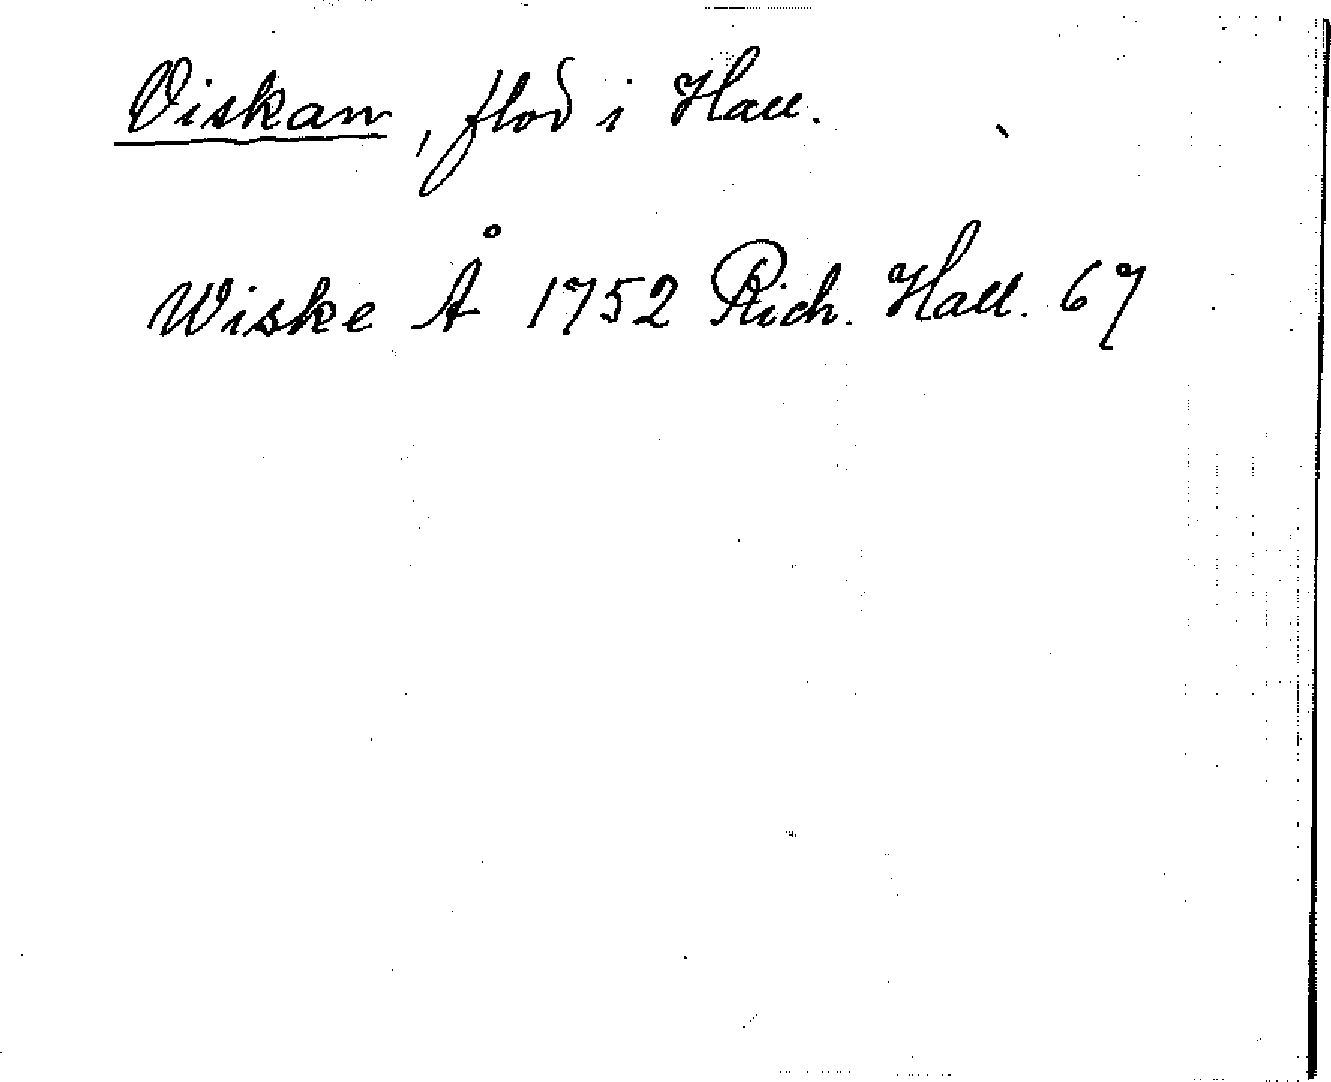 Viskan, flod i Hall.
Wiske Å 1752 Rich. Hall. 67